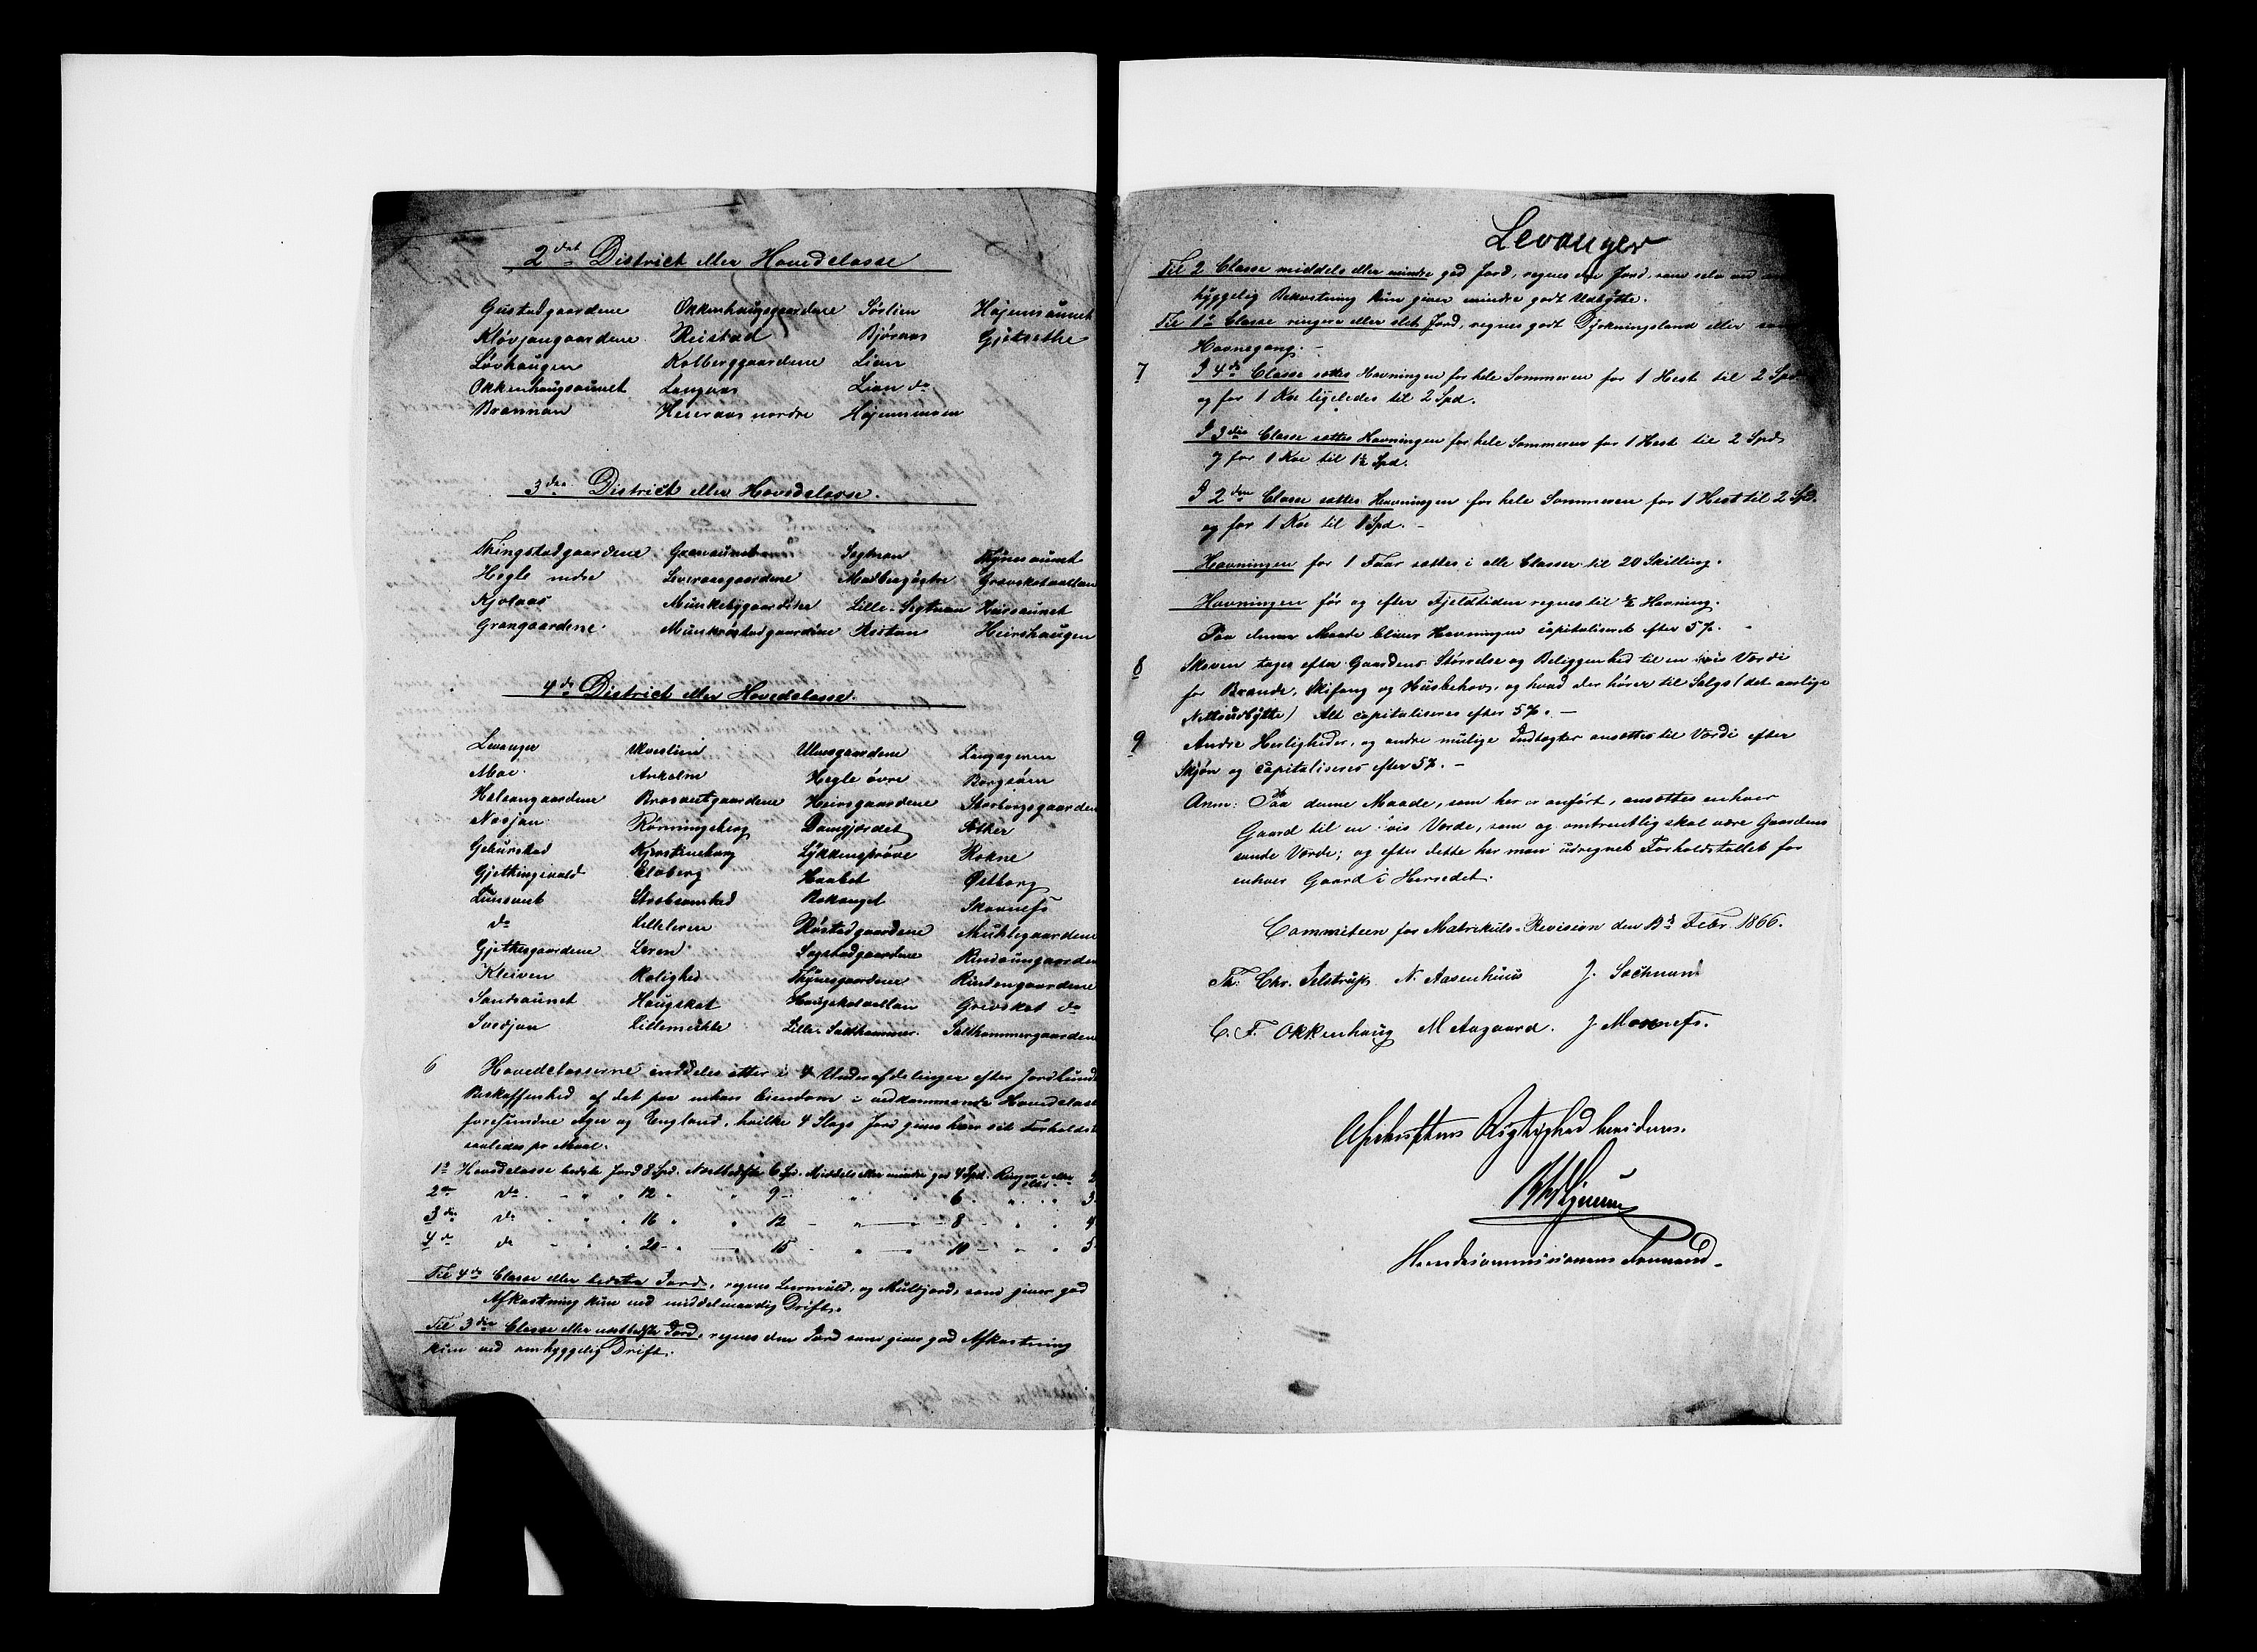 2det District eller Hovedclasse
Gustadgaardene Okkenhaugsgaardene Sørlien Højemsaunet
Kløvjangaardene Reistad Bjøraas Gjetsethe
Løvhaugen Kolberggaardene Lian
Okkenhaugsaunet Langaas Lian do
Brannan Heieraas nordre Højemsmoen
3die District eller Hovedclasse.
Thingstadgaardene Granaunet Segtnan Thynesaunet
Hegle nedre Leveraasgaardene Modbergøstre Gravskotvattan
Kjølaas Munkebygaardene Lille-Segtnan Hussaunet
Grangaardene Munkrøstadgaardene Ristan Heirshaugen
4de District eller Hovedclasse.
Levanger Ulvesgaardene
Moe Ankolm Hegle øvre Borgsøen
Halsangaardene Heirsgaardene Storborgsgaarden
Nossjan Rønningsberg Damgjærdet
Geburstad Kjerstineborg Lykkensprøve Rokne
Gjettingsvold Eloberg Haabet Østborg
Skavnefs
do Lilleleren Røstadgaardene Muhlegaardene
Gjethesgaardene Leren Sogstadgaardene Rindsumgaarden
Kleiven Rolighed Thynesgaardene Rindengaardene
Sandsaunet Haugskot Haugskotvollan Grevskot do
Svedjan Lillemohle Lille-Salthammer. Salthammergaardene
6 Hovedclasserne inddeles atter i 4 Underafdelinger efter Jordlundt
Beskaffenhed af det paa enhver Eiendom i vedkommende Hovedclasse
forefundne Ager og England, hvilke 4 Slags Jord gives hver sit Forholds
saaledes pr Maal.
1ste Hovedclasse bedste Jord 8 Spd. Næstbedste 6 Sp. Middels eller mindre god 4 Spd. Ringere eller slet 2
2den do. - " " 12 " " 9 - " " 6 " " 3
3die do - " " 16 " " 12 - " 8 - " " 4
4de do " 20 - " 15 - " 10 - " " 5
Til 4de Classe eller bedste Jord, regnes Leermuld, og Muldjord, som giver god
Afkastning kun ved middelmaadig Drift.
Til 3die Classe eller næstbedste Jord, regnes den Jord som giver god Afkastning
kun ved omhyggelig Drift.
Levanger
Til 2 Classe middels eller mindre god Jord, regnes den Jord, som selv ved om
hyggelig Bekostning kun giver mindre godt Udbytte.
Til 1ste Classe ringere eller slet Jord, regnes godt Dyrkningsland eller
Havnegang. -
7 I 4de Classe sættes Havningen for hele Sommeren for 1 Hest til 2 Spd
og for 1 Koe ligeledes til 2 Spd.
I 3die Classe sættes Havningen for hele Sommeren for 1 Hest til 2 Spd.
og for 1 Koe til 1½ Spd.
I 2den Classe sættes Havningen for hele Sommeren for 1 Hest til 2 Spd.
og for 1 Koe til 1 Spd. -
Havningen for 1 Faar sættes i alle Classer til 20 Skilling.
Havningen før og efter Fjeldtiden regnes til ½ Havning.
Paa denne Maade bliver Havningen capitaliseret efter 5%. -
8 Skoven tages efter Gaardens Størrelse og Beliggenhed til en vis Værdi
for Brænde, Skifang og Husbehov, og hvad der hører til Salgs (det aarlige
Nettoudbytte) Alt capitaliseres efter 5%. -
9 Andre Herligheder, og andre mulige Indtægter ansættes til Værdi efter
Skjøn og capitaliseres efter 5%. -
Anm: Paa denne Maade, som her er anført, ansættes enhver
Gaard til en vis Værde, som og omtrentlig skal være Gaardens
sande Værde; og efter dette har man udregnet Forholdstallet for
enhver Gaard i Herredet.
Committeen for Matrikuls-Revision den 13de Febr. 1866.
Th. Chr. Jelstrup. N. Aasenhuus J. Sochnan
C. F. Okkenhaug M Aagaard. J. Moxnefs.
Afskriftens Rigtighed bevidnes.
Herredscommissionens Formand.